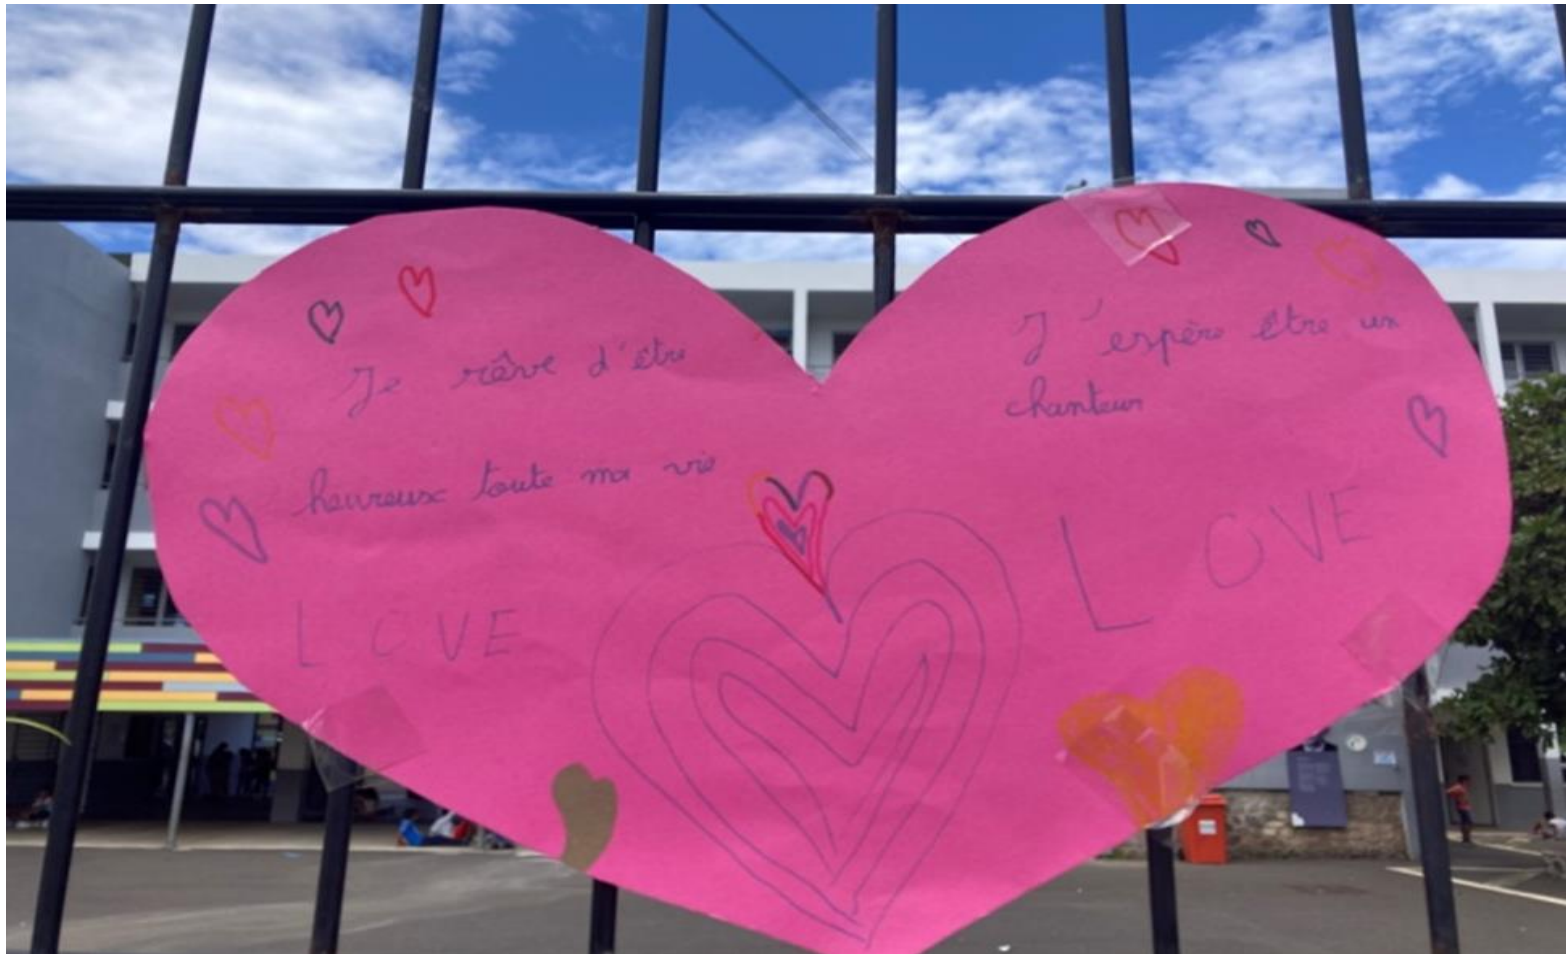 Je rêve d'être
heureux toute ma vie
LOVE
J'espère être un
chanteur
LOVE